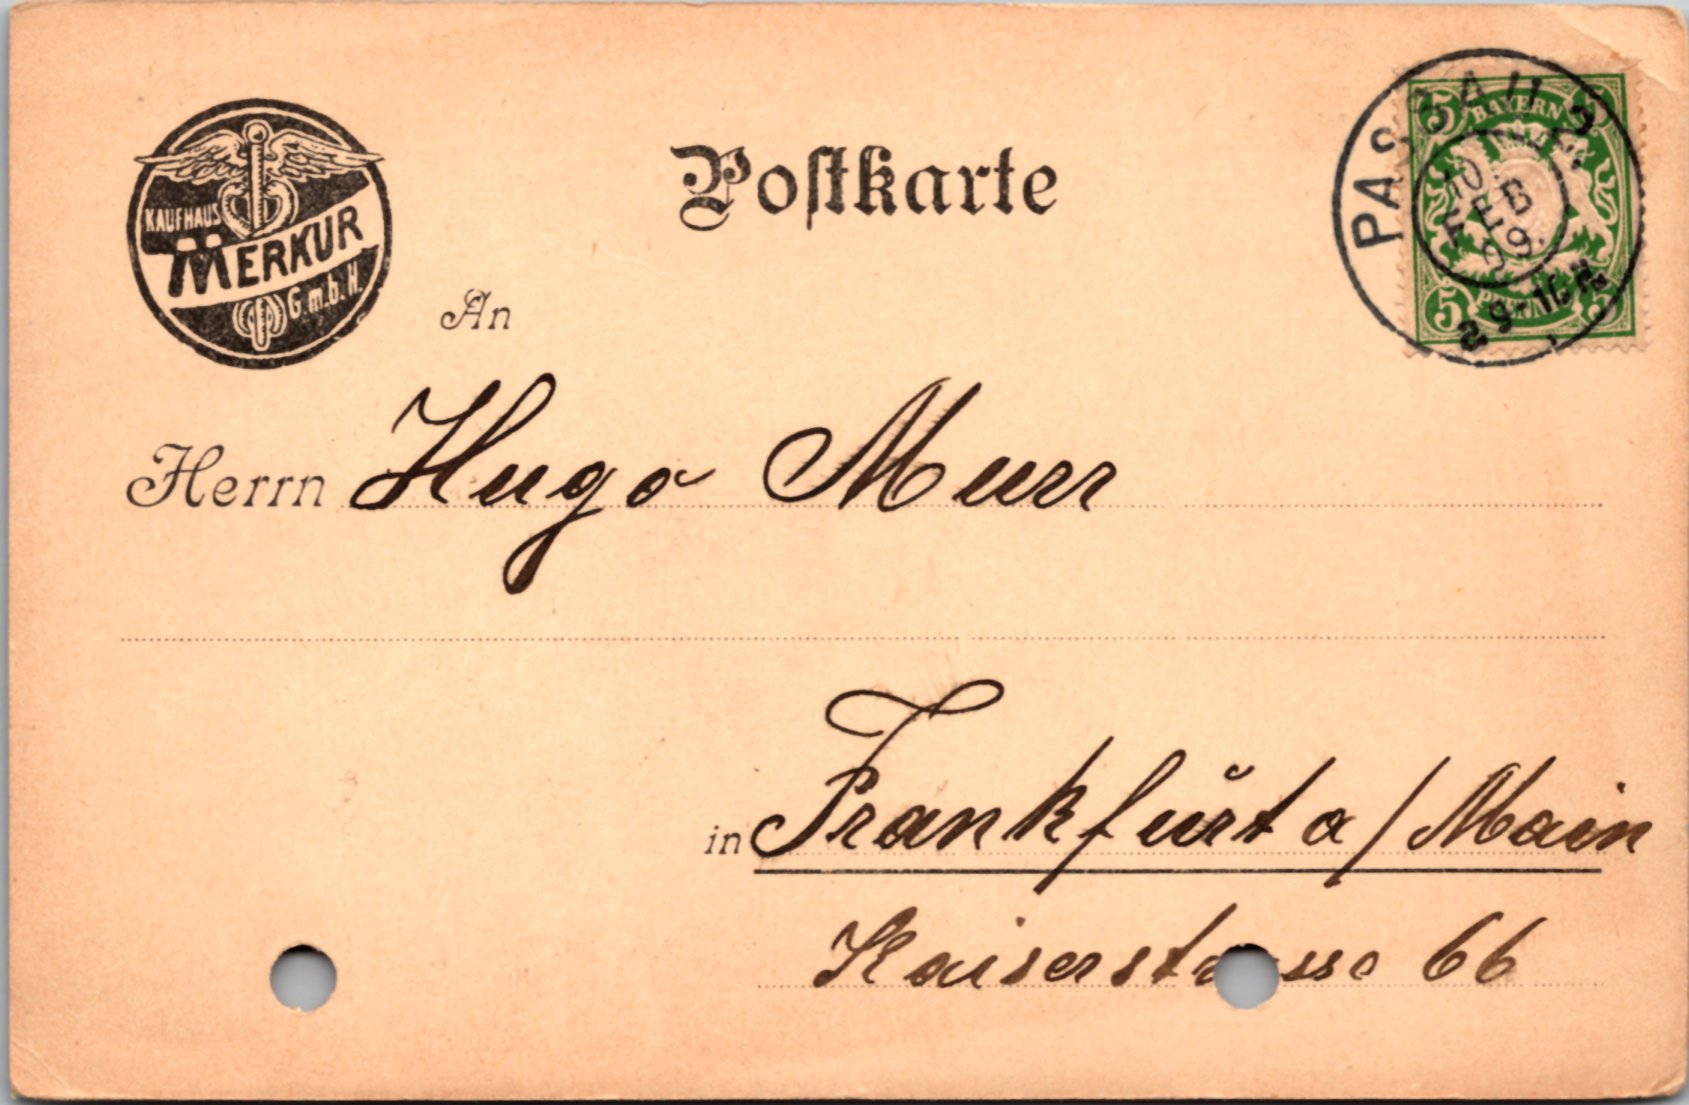 KAUFHAUS
MERKUR
G.m.b.H.
Postkarte
PASSAU 2
10.
FEB
09.
BAYERN
5
5
5
An
Herrn Hugo Murr
in Frankfurt a/Main
Kaiserstrasse 66